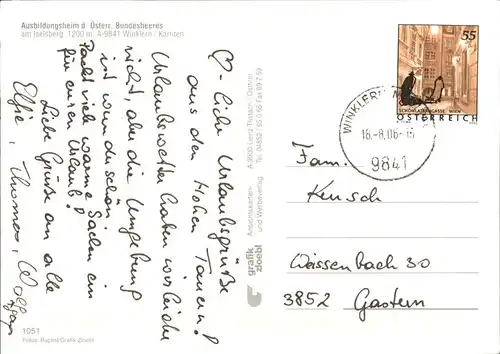 Ausbildungsheim d. Österr. Bundesheeres
am Iselsberg 1200 m, A-9841 Winklern / Kärnten
♡-liche Urlaubsgrüße
aus den Hohen Tauern!
Urlaubswetter haben wir leider
nicht, aber die Umgebung
ist wunderschön!
Packt viel warme Sachen ein
für euren Urlaub!
Liebe Grüße an alle
Elfie, Thomas, Wolfgang
1051
Fotos: Baptist/Grafik Zloebl
grafik
zloebl
Ansichtskarten-
und Werbeverlag
A-9900 Lienz-Tristach,
Tel. 04852 / 65 0 65 Fax 69 7 59
55
SCHÖNLATERNGASSE, WIEN
ÖSTERREICH
WINKLERN
18.-8.06-15
9841
Fam.
Kensch
Waissenbach 30
3852 Gastern